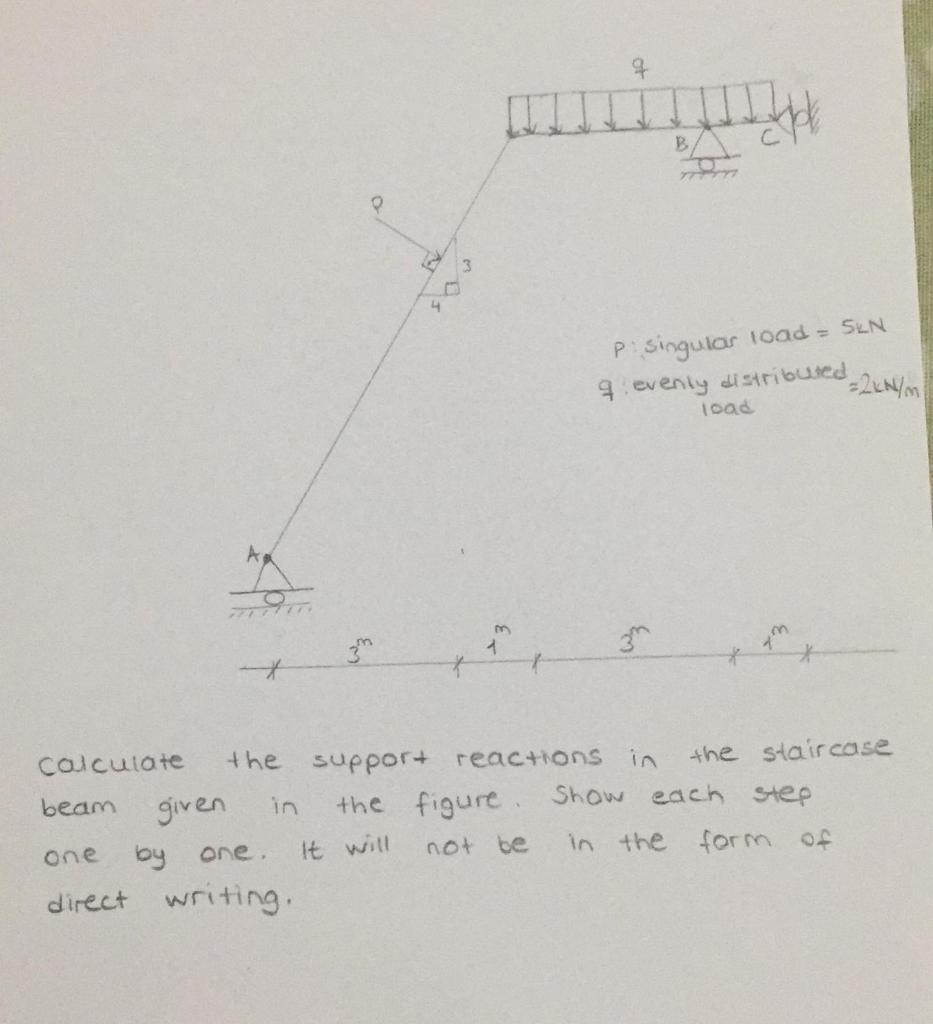 q
B
C
P
3
4
P: singular load = 5kN
q: evenly distributed = 2kN/m
load
A
3m 1m 3m 1m
calculate the support reactions in the staircase
beam given in the figure. Show each step
one by one. It will not be in the form of
direct writing.